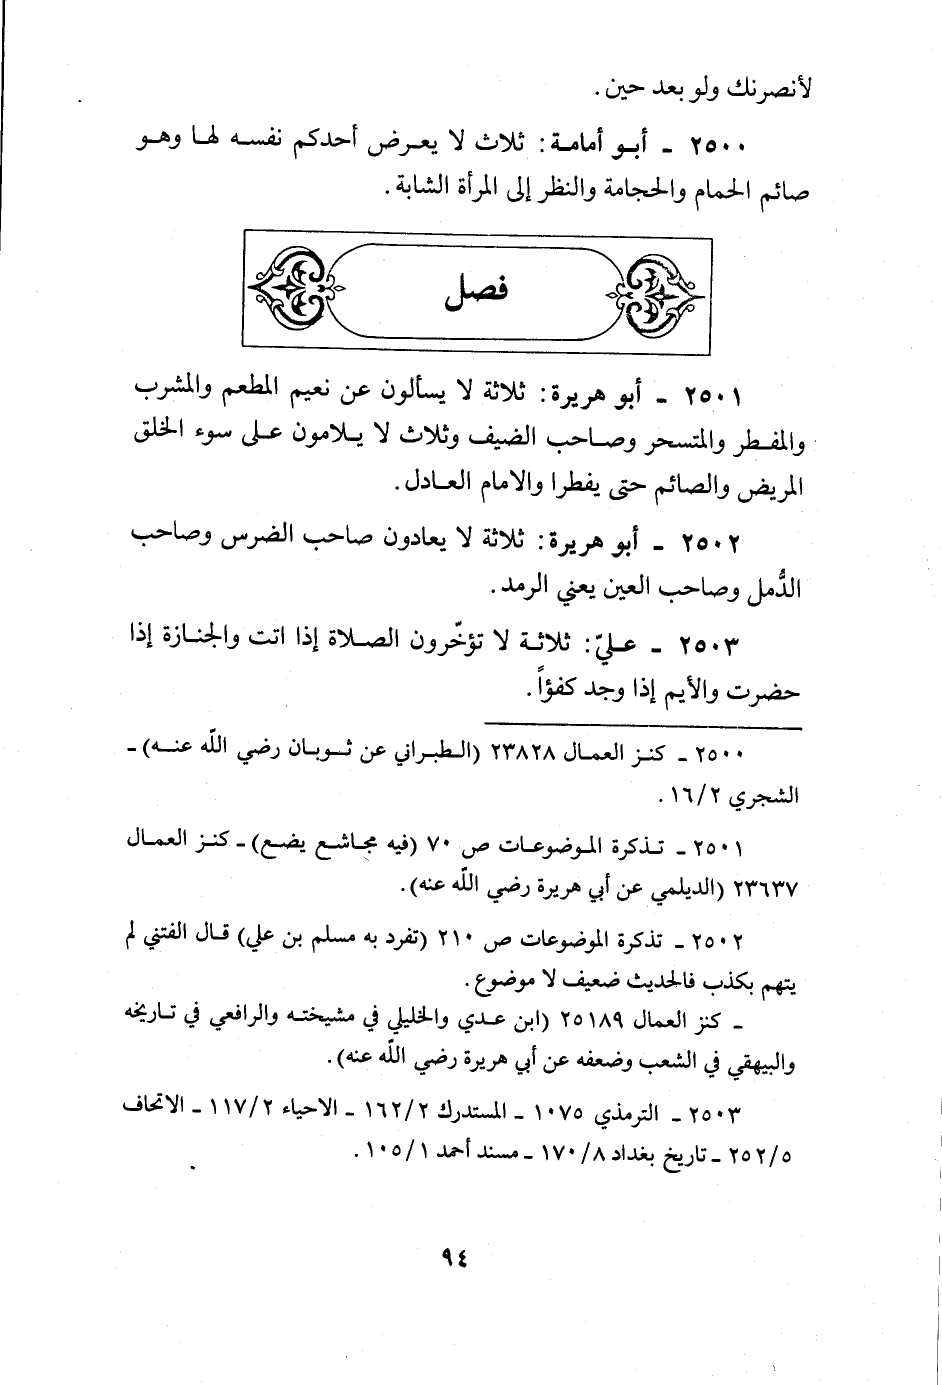 لأنصرنك ولو بعد حين .
٢٥٠٠ ـ أبو أمامة : ثلاث لا يعرض أحدكم نفسه لها وهو
صائم الحمام والحجامة والنظر إلى المرأة الشابة .
فصل
٢٥٠١ ـ أبو هريرة : ثلاثة لا يسألون عن نعيم المطعم والمشرب
والمفطر والمتسحر وصاحب الضيف وثلاث لا يلامون على سوء الخلق
المريض والصائم حتى يفطرا والامام العادل .
٢٥٠٢ ـ أبو هريرة : ثلاثة لا يعادون صاحب الضرس وصاحب
الدُّمل وصاحب العين يعني الرمد .
٢٥٠٣ ـ عليّ : ثلاثة لا تؤخّرون الصلاة إذا اتت والجنازة إذا
حضرت والأيم إذا وجد كفؤاً .
٢٥٠٠ ـ كنز العمال ٢٣٨٢٨ (الطبراني عن ثوبان رضي اللّه عنه) ـ
الشجري ١٦/٢ .
٢٥٠١ ـ تذكرة الموضوعات ص ٧٠ (فيه مجاشع يضع) ـ كنز العمال
٢٣٦٣٧ (الديلمي عن أبي هريرة رضي اللّه عنه) .
٢٥٠٢ ـ تذكرة الموضوعات ص ٢١٠ (تفرد به مسلم بن علي) قال الفتني لم
يتهم بكذب فالحديث ضعيف لا موضوع .
ـ كنز العمال ٢٥١٨٩ (ابن عدي والخليلي في مشيخته والرافعي في تاريخه
والبيهقي في الشعب وضعفه عن أبي هريرة رضي اللّه عنه) .
٢٥٠٣ ـ الترمذي ١٠٧٥ ـ المستدرك ١٦٢/٢ ـ الاحياء ١١٧/٢ ـ الاتحاف
٢٥٢/٥ ـ تاريخ بغداد ١٧٠/٨ ـ مسند أحمد ١٠٥/١ .
٩٤